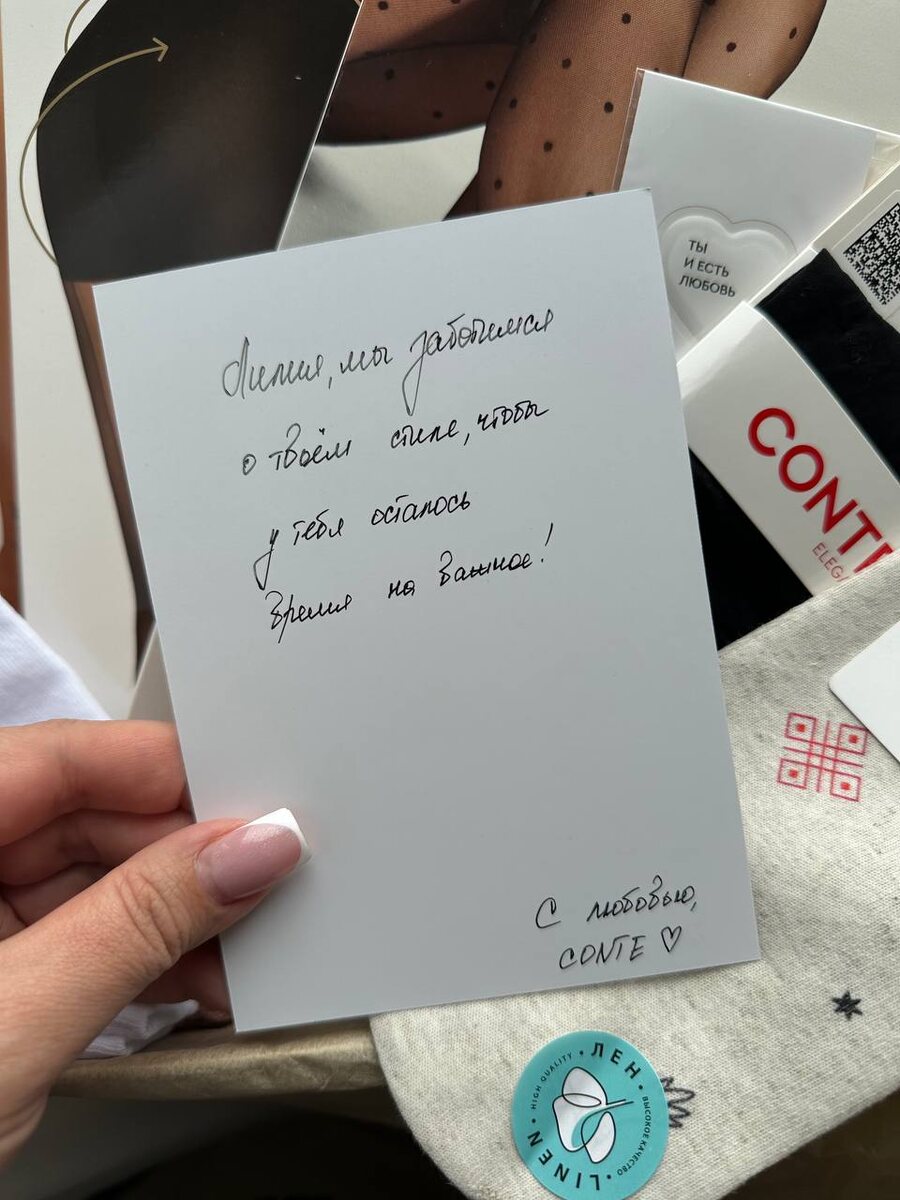 ТЫ
И ЕСТЬ
ЛЮБОВЬ
Лилия, мы заботимся
о твоём стиле, чтобы
у тебя осталось
время на важное!
С любовью,
CONTE ♡
CONTE
ЛЕН
ВЫСОКОЕ КАЧЕСТВО
LINEN
HIGH QUALITY